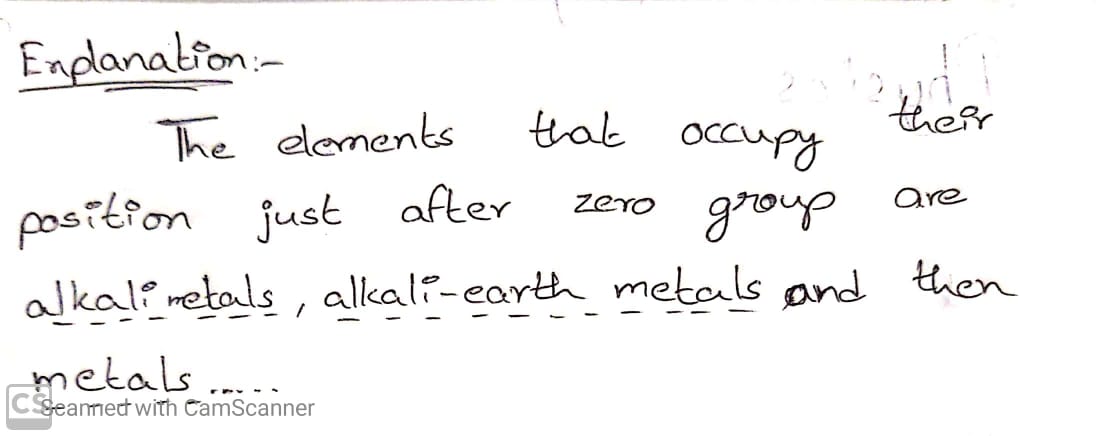 Explanation:-
The elements that occupy their
position just after zero group are
alkali metals, alkali-earth metals and then
metals......
CS Scanned with CamScanner